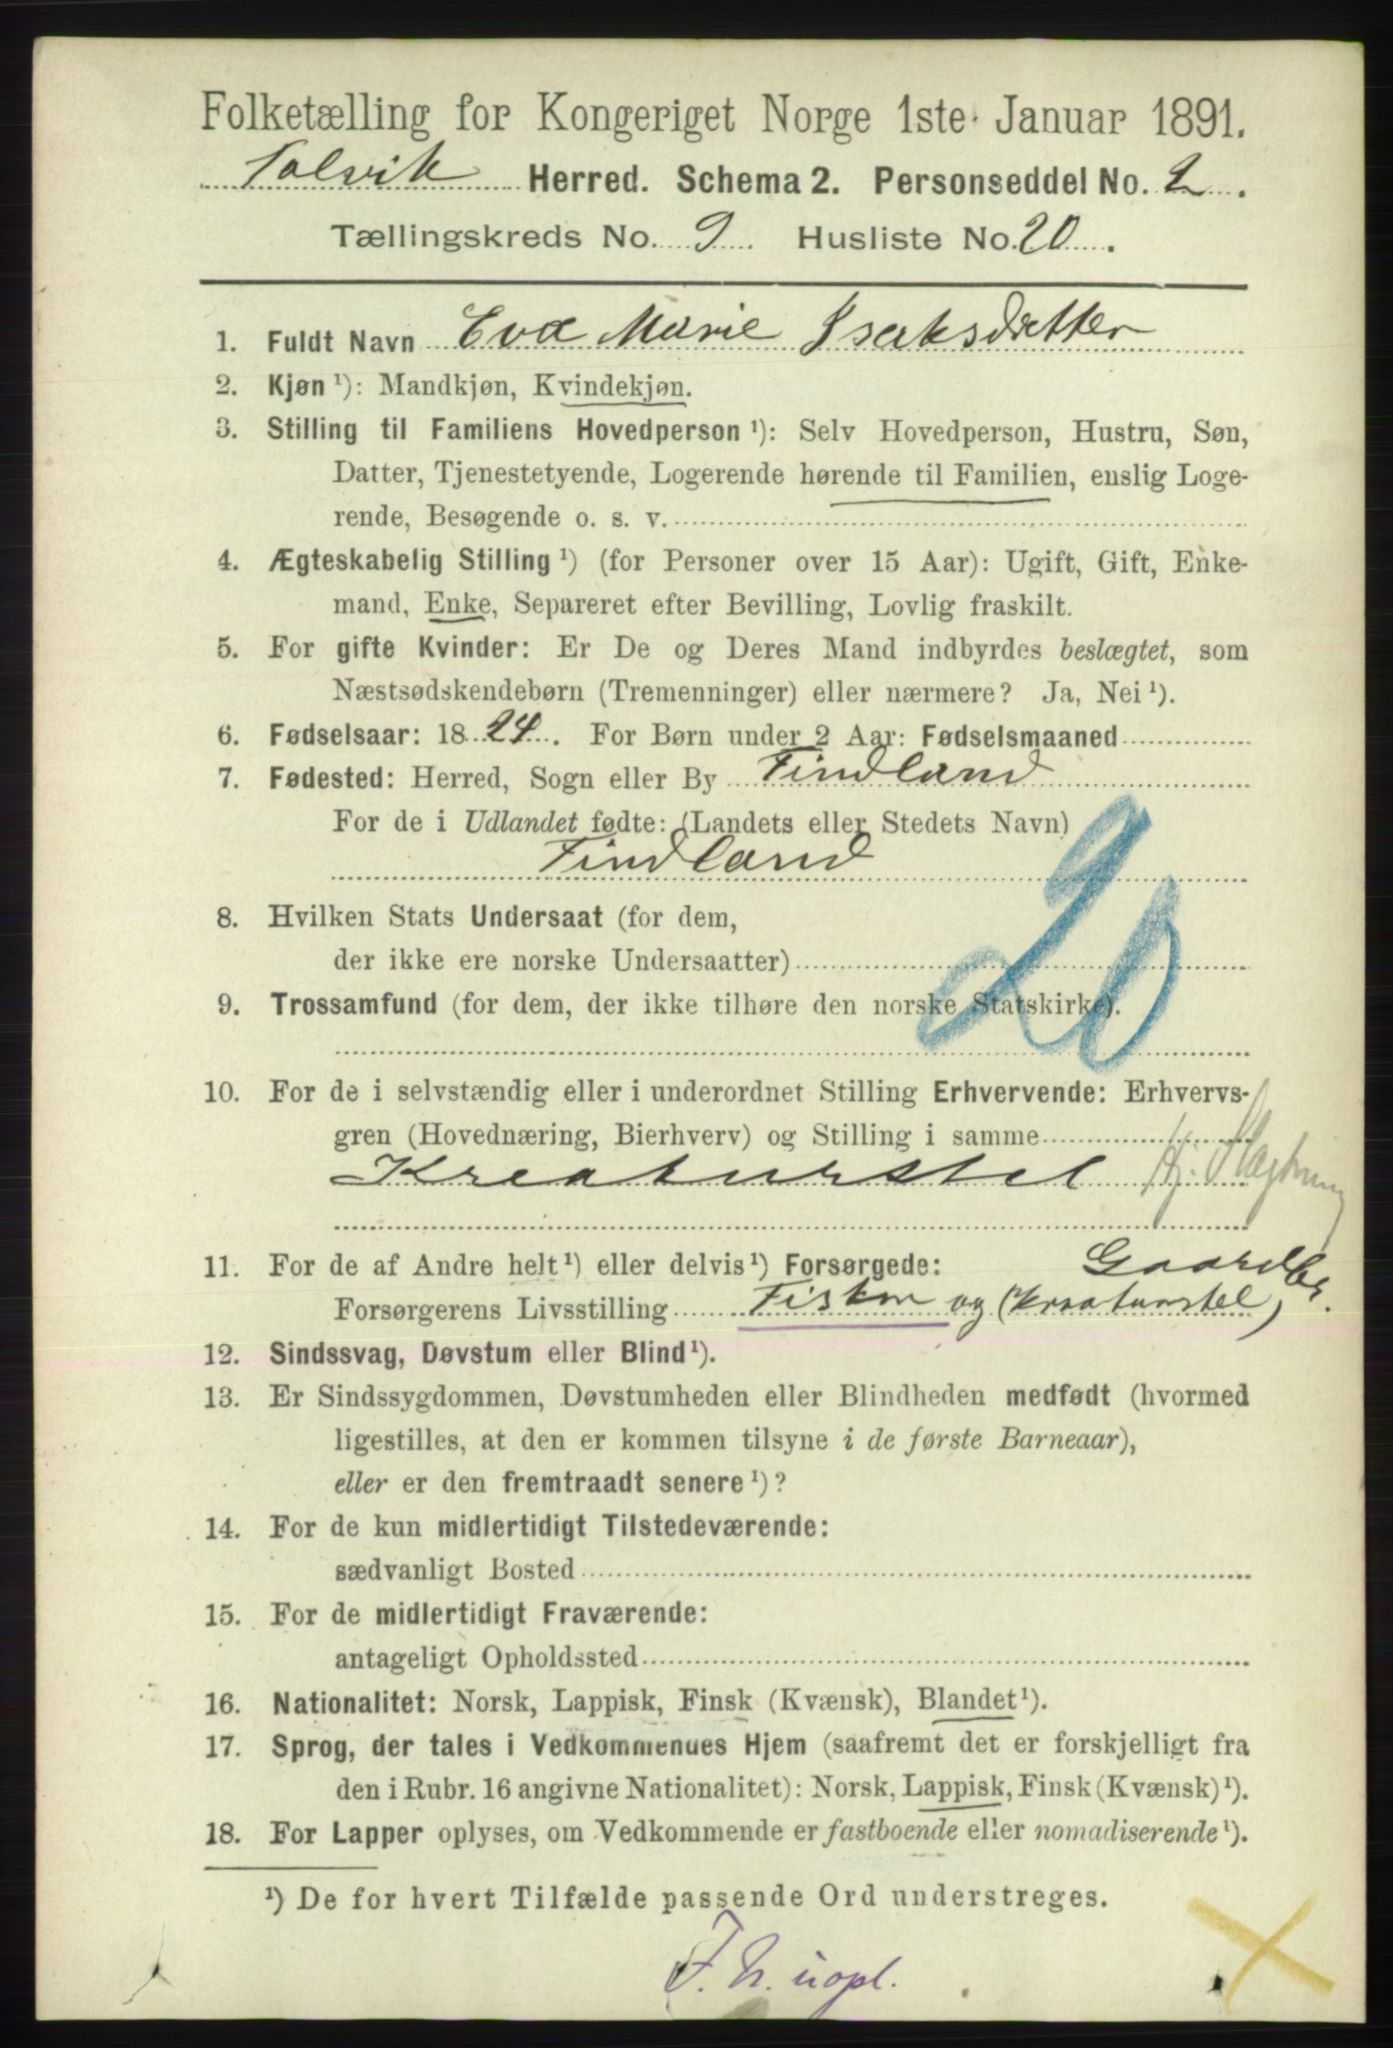 Folketælling for Kongeriget Norge 1ste Januar 1891.
Talvik Herred. Schema 2. Personseddel No. 2.
Tællingskreds No. 9 Husliste No. 20.
1. Fuldt Navn Eva Marie Isaksdatter
2. Kjøn ¹): Mandkjøn, Kvindekjøn.
3. Stilling til Familiens Hovedperson ¹): Selv Hovedperson, Hustru, Søn,
Datter, Tjenestetyende, Logerende hørende til Familien, enslig Loge-
rende, Besøgende o. s. v.
4. Ægteskabelig Stilling ¹) (for Personer over 15 Aar): Ugift, Gift, Enke-
mand, Enke, Separeret efter Bevilling, Lovlig fraskilt.
5. For gifte Kvinder: Er De og Deres Mand indbyrdes beslægtet, som
Næstsødskendebørn (Tremenninger) eller nærmere? Ja, Nei ¹).
6. Fødselsaar: 18 24. For Børn under 2 Aar: Fødselsmaaned
7. Fødested: Herred, Sogn eller By Findland
For de i Udlandet fødte: (Landets eller Stedets Navn)
Findland
20
8. Hvilken Stats Undersaat (for dem,
der ikke ere norske Undersaatter)
9. Trossamfund (for dem, der ikke tilhøre den norske Statskirke).
10. For de i selvstændig eller i underordnet Stilling Erhvervende: Erhvervs-
gren (Hovednæring, Bierhverv) og Stilling i samme
Kreaturstel Hj.
11. For de af Andre helt ¹) eller delvis ¹) Forsørgede: Gaardbr.
Forsørgerens Livsstilling Fisker og (kreaturstel)
12. Sindssvag, Døvstum eller Blind ¹).
13. Er Sindssygdommen, Døvstumheden eller Blindheden medfødt (hvormed
ligestilles, at den er kommen tilsyne i de første Barneaar),
eller er den fremtraadt senere ¹)?
14. For de kun midlertidigt Tilstedeværende:
sædvanligt Bosted
15. For de midlertidigt Fraværende:
antageligt Opholdssted
16. Nationalitet: Norsk, Lappisk, Finsk (Kvænsk), Blandet ¹).
17. Sprog, der tales i Vedkommendes Hjem (saafremt det er forskjelligt fra
den i Rubr. 16 angivne Nationalitet): Norsk, Lappisk, Finsk (Kvænsk) ¹).
18. For Lapper oplyses, om Vedkommende er fastboende eller nomadiserende ¹).
¹) De for hvert Tilfælde passende Ord understreges.
F. N. uopl.